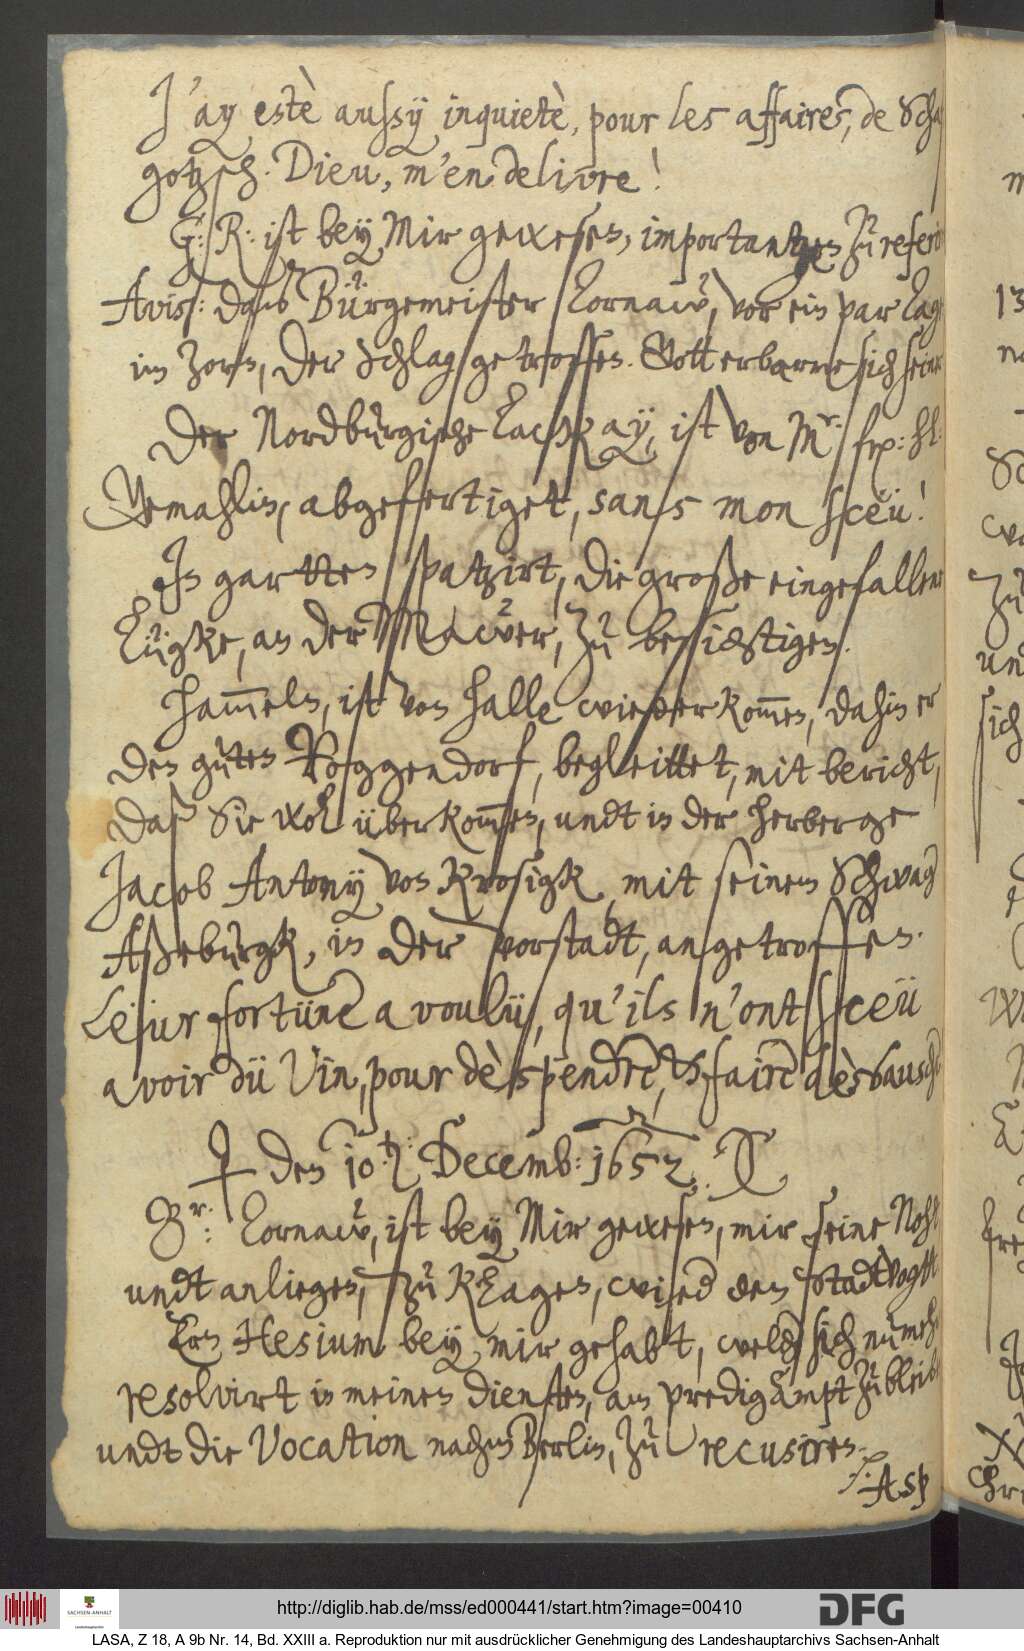 J'ay estè aussy inquietè, pour les affaires, de Scha
gotzsch: Dieu, m'en delivre!
G: R: ist bey Mir gewesen, importantzen zu referi
Aviss: daß Bürgemeister Cornaw, vor ein par tage
im zorn, der Schlag getroffen. Gott erbarme sich seine
Der Nordburgische Lackay, ist von Mr: frp: hl:
Gemahlin, abgefertiget, sans mon sceü!
In gartten spatzirt, die große eingefallene
Lügke, an der Mawer, zu besichtigen.
Hammeln, ist von Halle wiederkommen, dahin er
den guten Roggendorf, begleittet, mit bericht,
daß Sie wol überkommen, undt in der herberge
Jacob Antony von Krosigk, mit seinem Schwag
Aßeburgk, in der vorstadt, angetroffen.
Leür fortüne a voulü, qu'ils n'ont sceü
avoir dü Vin, pour dèspendre, & faire dèsbausch
♀ den 10.t: Decemb: 1652.
Gr: Cornaw, ist bey Mir gewesen, mir seine Noht
undt anliegen, zu klagen, wied den Stadtvogtt
Ern Hesium bey mir gehabt, welch sich numeh
resolvirt in meinen diensten, am predigampt zu bleib
undt die Vocation nacher Berlin, zu recusiren.
Asp
http://diglib.hab.de/mss/ed000441/start.htm?image=00410
DFG
SACHSEN-ANHALT
LASA, Z 18, A 9b Nr. 14, Bd. XXIII a. Reproduktion nur mit ausdrücklicher Genehmigung des Landeshauptarchivs Sachsen-Anhalt